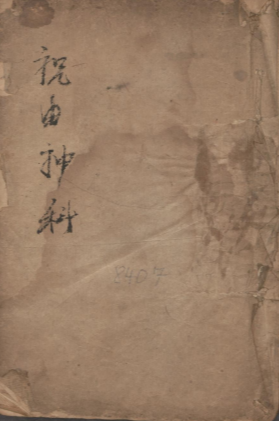 祝由神科